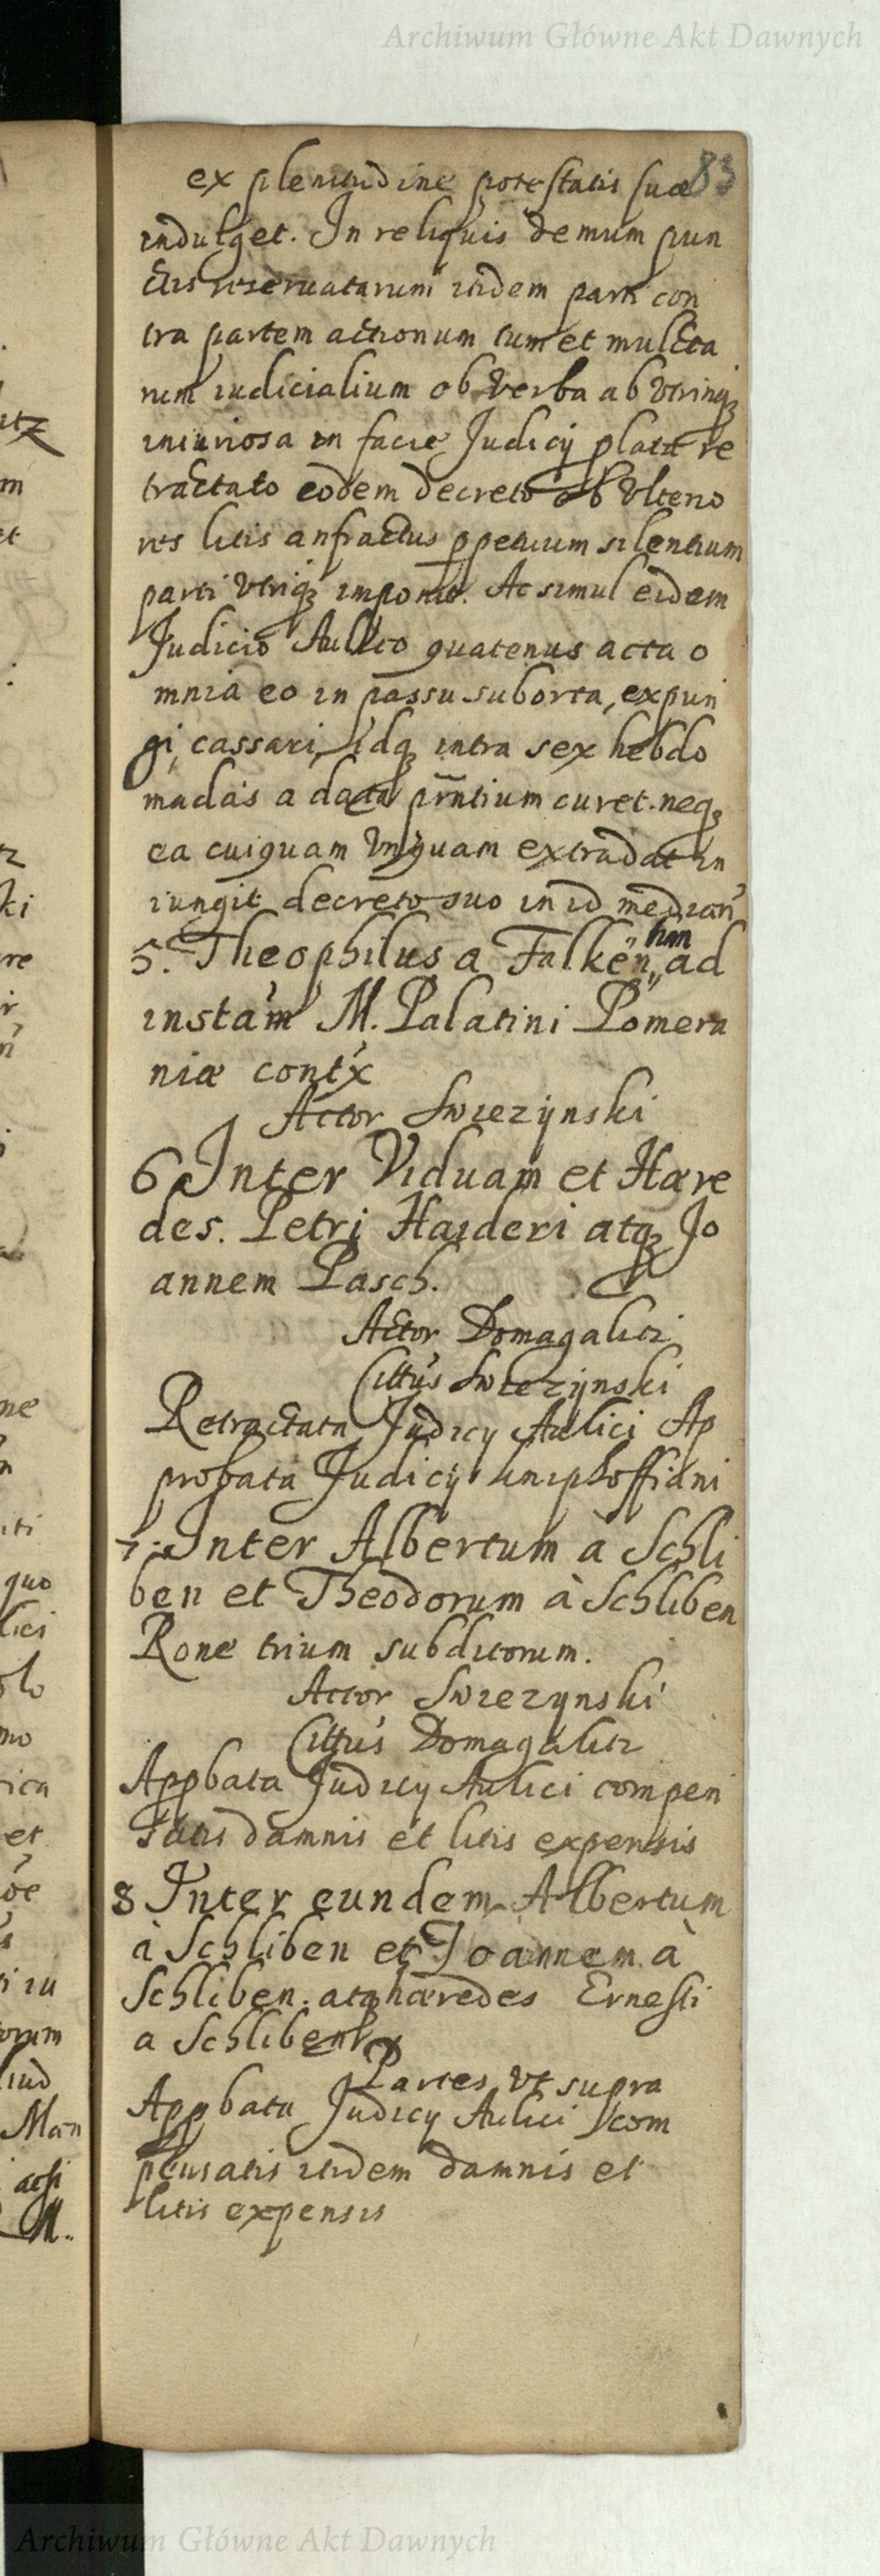 Archiwum Główne Akt Dawnych
83
ex plenitudine potestatis suæ
indulget. In reliquis demum pun
ctis reseruatarum itidem parti con
tra partem actionum tum et mulcta
rum iudicialium ob verba ab vtrinq
iniuriosa in facie Judicij plata re
tractato eodem decreto ob vlterio
res litis anfractus ppetuum silentium
parti vtriq imponit. Ac simul eidem
Judicio Aulico quatenus acta o
mnia eo in passu suborta, expun
gi, cassari, idq intra sex hebdo
madas a data pñtium curet. neq
ea cuiquam vnquam extradat in
iungit decreto suo in id mediañ
5. Theophilus a Falken han ad
instam M. Palatini Pomera
niæ contx
Actor Swiezijnski
6 Inter Viduam et Hære
des. Petri Haideri atq Jo
annem Pasch.
Actor Domagalicz
Cittus Swiezijnski
Retractata Judicij Aulici Ap
probata Judicij
7. Inter Albertum à Schli
ben et Theodorum à Schliben
Rone trium subditorum.
Actor Swiezynski
Cittus Domagalicz
Appbata Judicij Aulici compen
satis damnis et litis expensis
8 Inter eundem Albertum
à Schliben et Joannem à
Schliben. atq hæredes Ernesti
a Schliben
Partes vt supra
Appbata Judicij Aulici com
pensatis itidem damnis et
litis expensis
Archiwum Główne Akt Dawnych